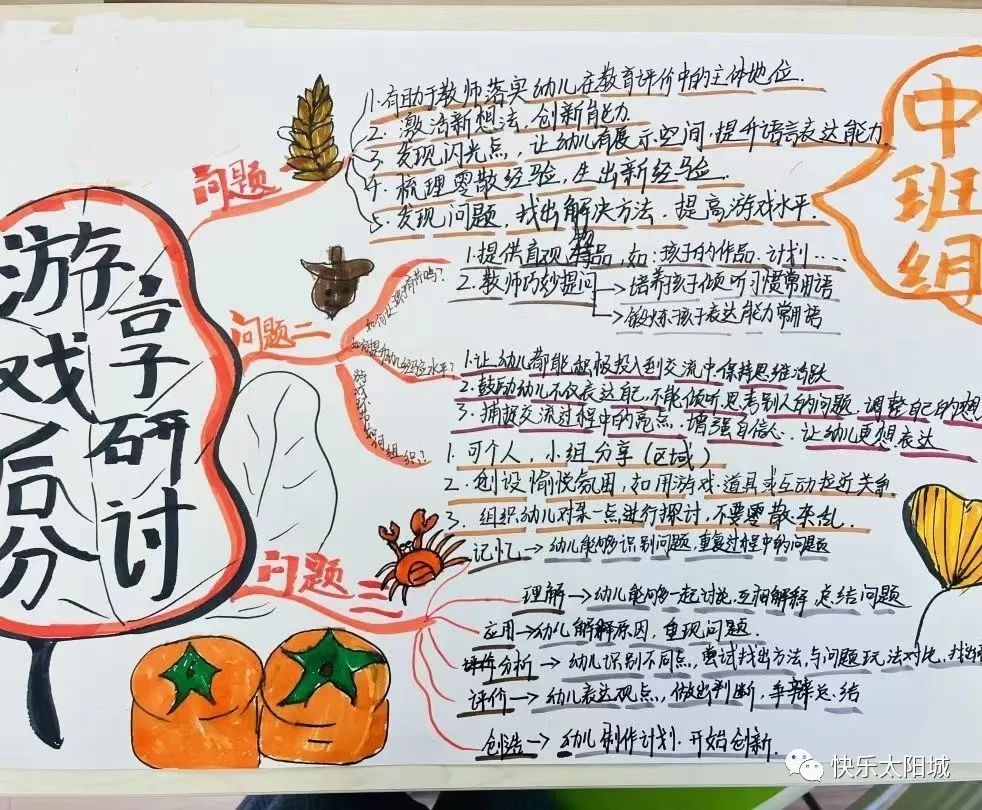 游戏后分
享研讨
中班组
问题一
1.有助于教师落实幼儿在教育评价中的主体地位.
2.激活新想法,创新能力
3.发现闪光点,让幼儿有展示空间.提升语言表达能力
4.梳理零散经验,生出新经验.
5.发现问题,找出解决方法.提高游戏水平.
问题二
如何提升幼儿经验水平?
组织?
1.提供直观物品,如:孩子的作品.计划.....
2.教师巧妙提问→培养孩子倾听习惯常用语
→锻炼孩子表达能力常用语
1.让幼儿都能积极投入到交流中保持思维活跃
2.鼓励幼儿不仅表达自己,不能倾听思考别人的问题.调整自己的想
3.捕捉交流过程中的亮点,增强自信心.让幼儿更想表达
1.可个人,小组分享(区域)
2.创设愉悦氛围,如用游戏.道具或互动拉近关系
3.组织幼儿对某一点进行探讨,不要零散杂乱.
问题三
记忆→幼儿能够识别问题,重复过程中的问题
理解→幼儿能够一起讨论,互相解释 总结问题
应用→幼儿解释原因,重现问题.
分析→幼儿识别不同点,尝试找出方法,与问题玩法对比,找出
评价→幼儿表达观点,做出判断,争辩总结
创造→幼儿制作计划.开始创新.
快乐太阳城